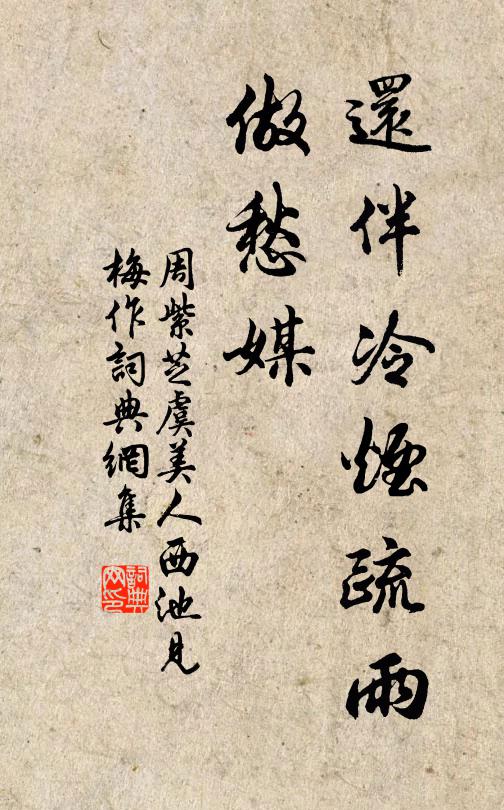 還伴冷煙疏雨
做愁媒
周紫芝虞美人西池見
梅作詞典網集
詞典
网印